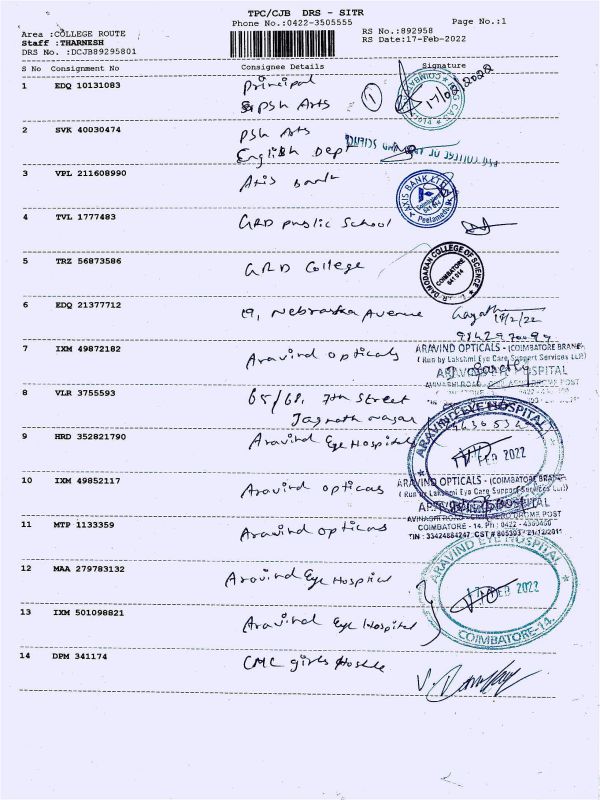 TPC/CJB DRS - SITR
Phone No.:0422-3505555
Page No.:1
Area :COLLEGE ROUTE
Staff : THARNESH
DRS No. :DCJB89295801
RS No.:892958
RS Date:17-Feb-2022
S No Consignment No Consignee Details Signature
1 EDQ 10131083 Principal
PSG Arts
1 17/02/2022
2 SVK 40030474 PSG Arts
English Dep
3 VPL 211608990 Axis Bank
AXIS BANK LTD
Peelamedu
4 TVL 1777483 GRD public School
5 TRZ 56873586 GRD College
DAMODARAN COLLEGE OF SCIENCE
COIMBATORE
641 014
6 EDQ 21377712 19, Nebraska Avenue
7 IXM 49872182 Aravind opticals
ARAVIND OPTICALS - (COIMBATORE BRANCH
( Run by Lakshmi Eye Care Support Services LLP)
8 VLR 3755593 65/68, 7th Street
Jagnath nagar
9 HRD 352821790 Aravind Eye Hospital
ARAVIND EYE HOSPITAL
FEB 2022
10 IXM 49852117 Aravind opticas
ARAVIND OPTICALS - (COIMBATORE BRANCH
( Run by Lakshmi Eye Care Support Services LLP)
AVINASHI ROAD
COIMBATORE - 14. Ph : 0422 -
11 MTP 1133359 Aravind opticas
12 MAA 279783132 Aravind Eye Hospital
ARAVIND EYE HOSPITAL
17 FEB 2022
COIMBATORE-14.
13 IXM 501098821 Aravind Eye Hospital
14 DPM 341174 CMC girls Hostle